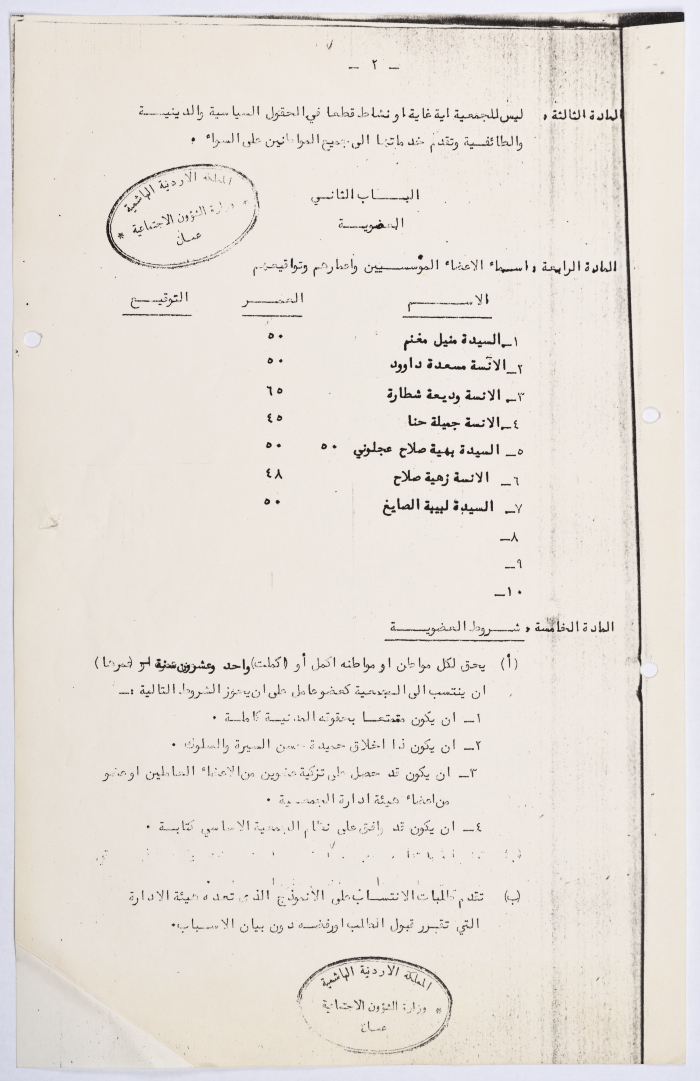 - ٢ -
المادة الثالثة : ليس للجمعية اية غاية او نشاط قطعا في الحقول السياسية والدينية
والطائفية وتقدم خدماتها الى جميع المواطنين على السواء .
المملكة الاردنية الهاشمية
* وزارة الشؤون الاجتماعية *
عمان
الباب الثاني
العضوية
المادة الرابعة : اسماء الاعضاء المؤسسيين واعمارهم وتواقيعهم
الاسم العمر التوقيع
١- السيدة منيل مغنم ٥٠
٢- الآنسة مسعدة داوود ٥٠
٣- الانسة وديعة شطارة ٦٥
٤- الانسة جميلة حنا ٤٥
٥- السيدة بهية صلاح عجلوني ٥٠ ٥٠
٦- الانسة زهية صلاح ٤٨
٧- السيدة لبيبة الصايغ ٥٠
٨-
٩-
١٠-
المادة الخامسة : شروط العضوية
(أ) يحق لكل مواطن او مواطنه اكمل أو (اكملت) واحد وعشرون سنة (عمرها)
ان ينتسب الى الجمعية كعضو عامل على ان يحوز الشروط التالية :-
١- ان يكون متمتعا بحقوقه المدنية كاملة .
٢- ان يكون ذا اخلاق حميدة حسن السيرة والسلوك .
٣- ان يكون قد حصل على تزكية عضوين من الاعضاء العاملين او عضو
من اعضاء هيئة ادارة الجمعية .
٤- ان يكون قد وافق على نظام الجمعية الاساسي كتابة .
(ب) تقدم طلبات الانتساب على الأنموذج الذي تعده هيئة الادارة
التي تقرر قبول الطلب او رفضه دون بيان الاسباب .
المملكة الاردنية الهاشمية
* وزارة الشؤون الاجتماعية *
عمان